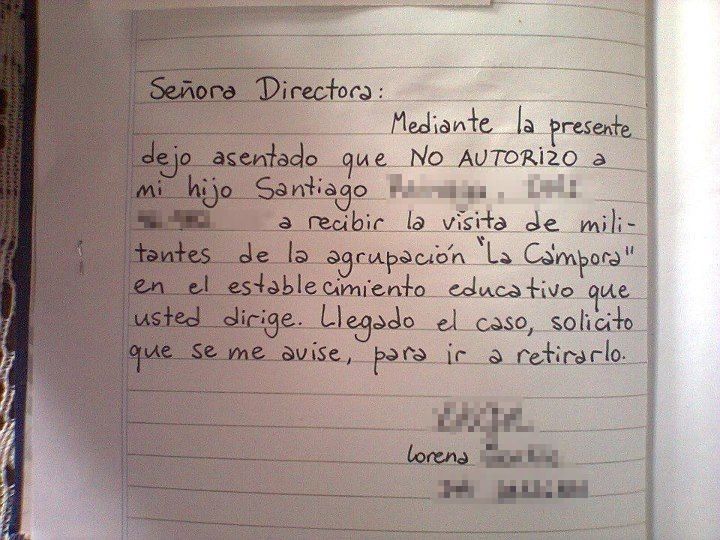 Señora Directora:
Mediante la presente
dejo asentado que NO AUTORIZO a
mi hijo Santiago
a recibir la visita de mili-
tantes de la agrupación "La Cámpora"
en el establecimiento educativo que
usted dirige. Llegado el caso, solicito
que se me avise, para ir a retirarlo.
Lorena